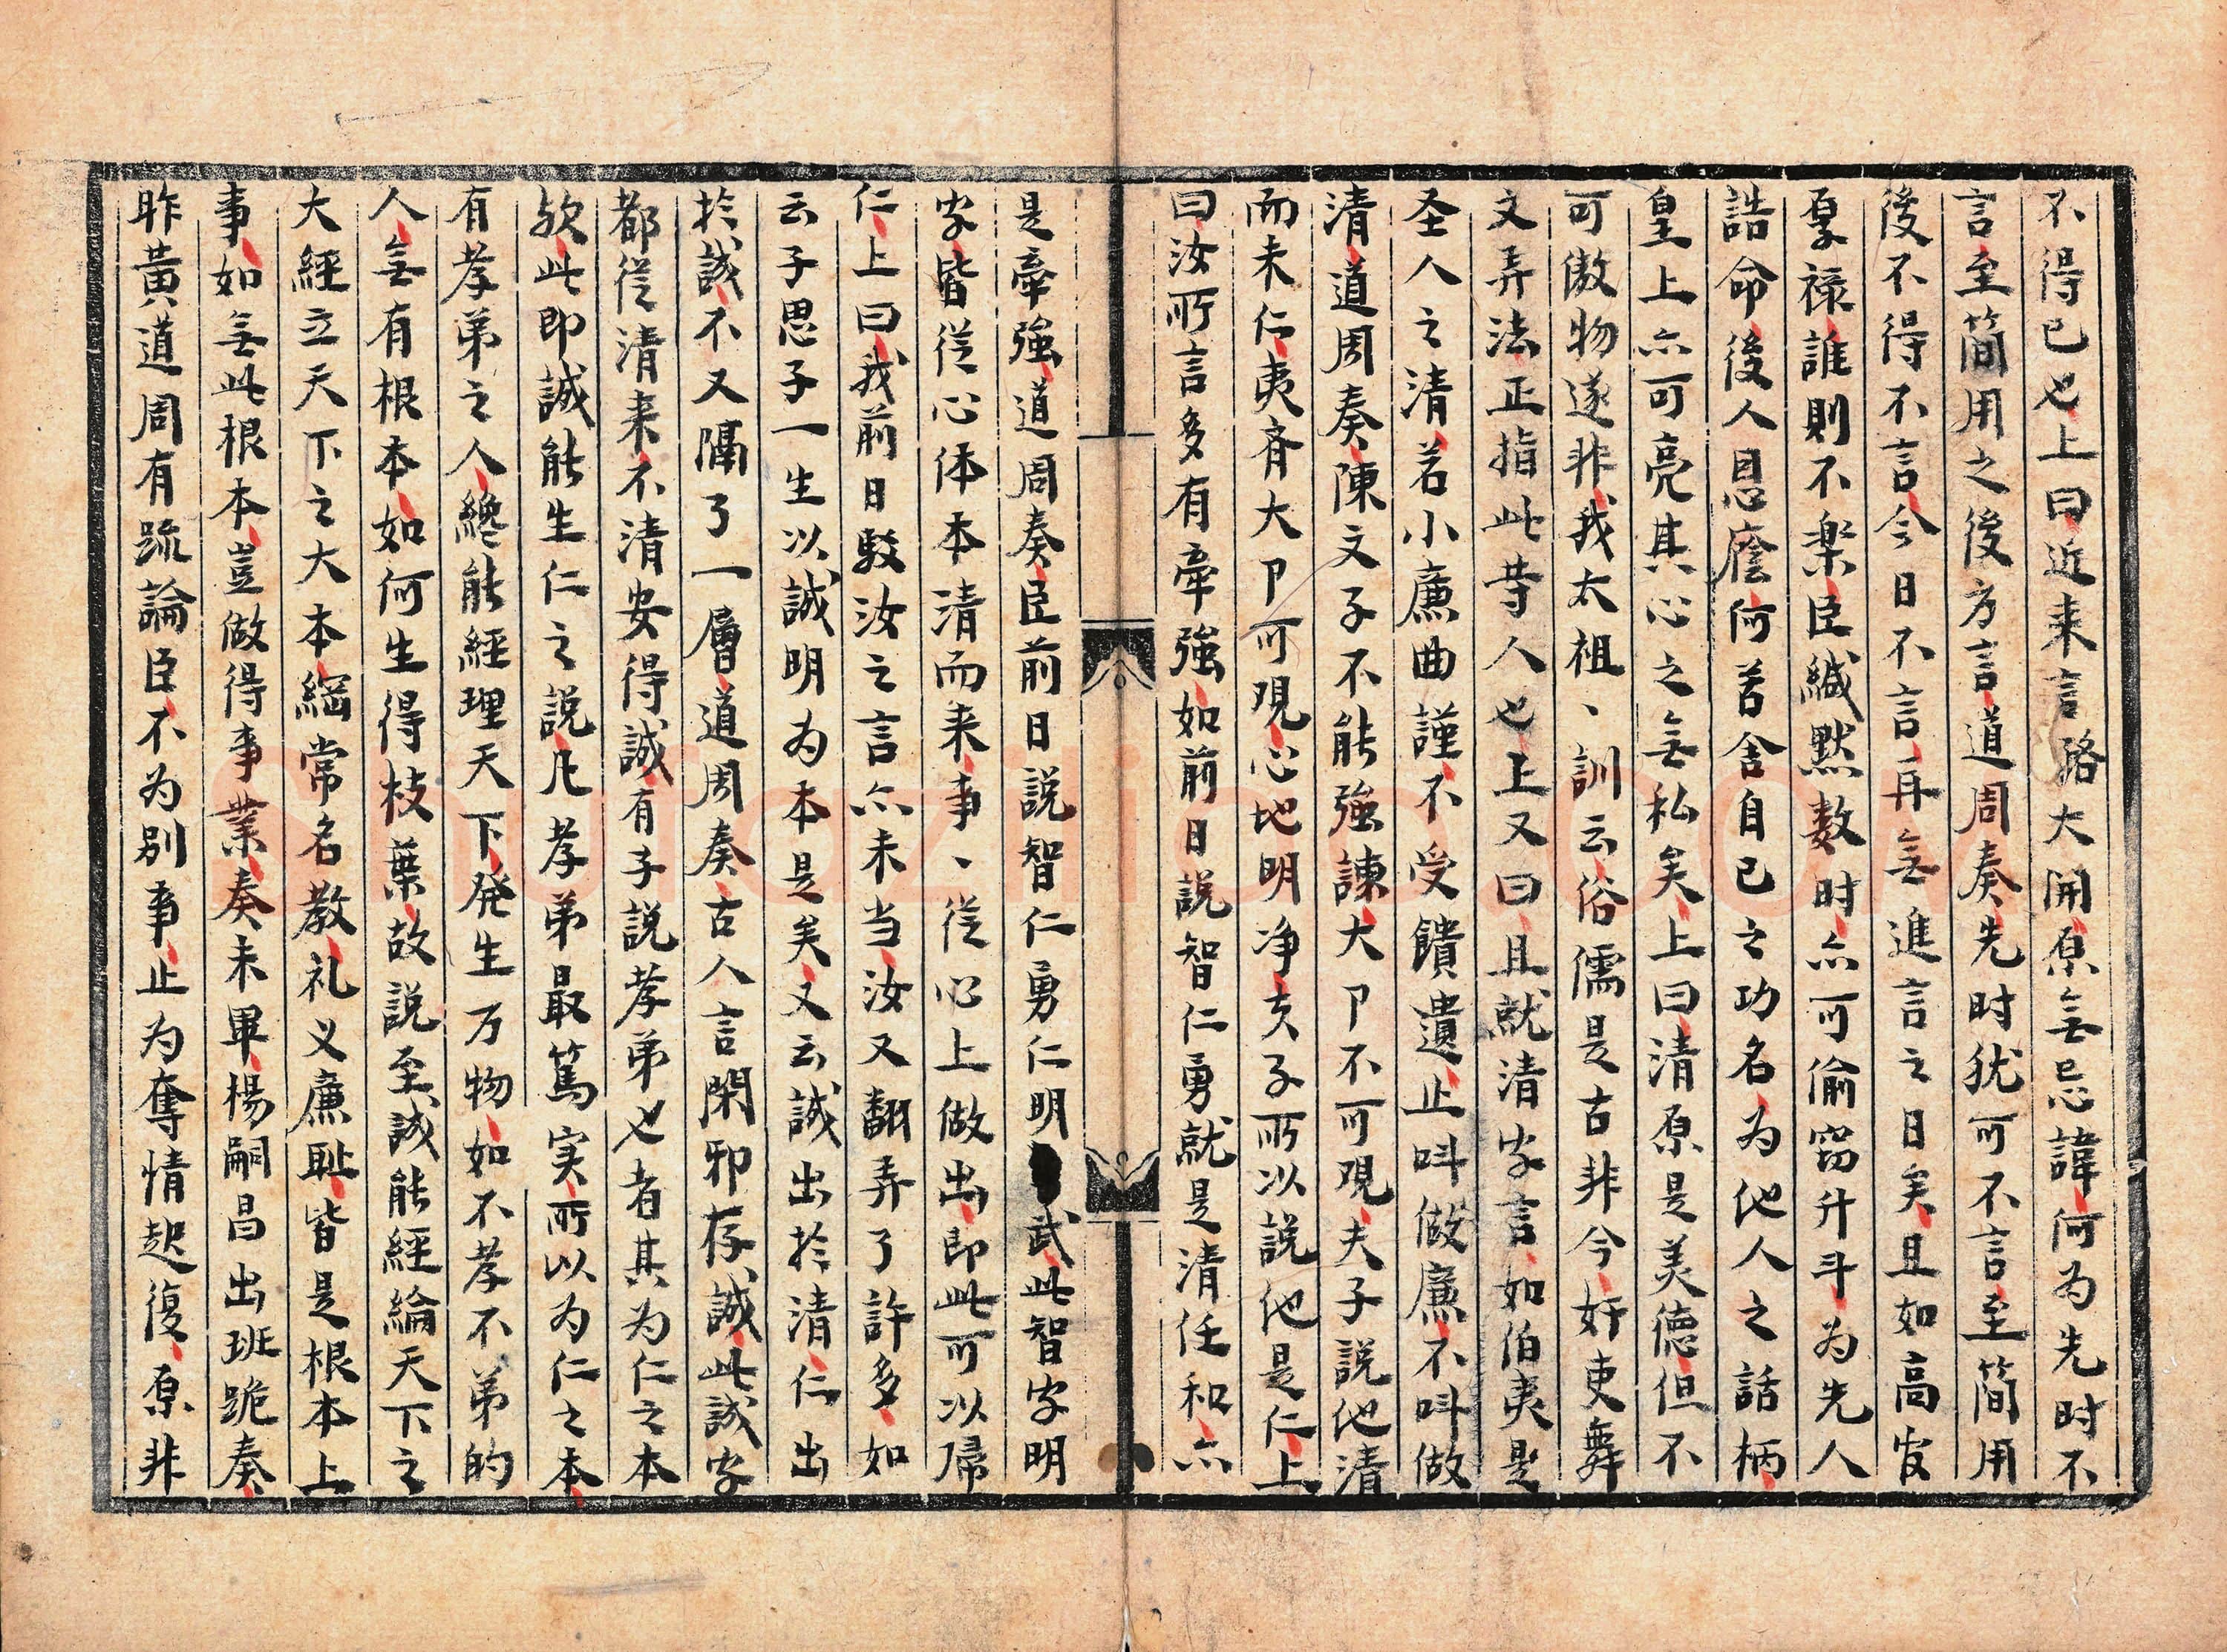 不得已也上曰近来言路大開原無忌諱何为先时不
言至簡用之後方言道周奏先时犹可不言至简用
後不得不言今日不言再無進言之日矣且如高官
厚禄誰則不楽臣緘黙数时亦可偷窃升斗为先人
誥命後人恩廕何苦舍自已之功名为他人之話柄
皇上亦可亮其心之無私矣上曰清原是美德但不
可傲物遂非我太祖、訓云俗儒是古非今奸吏舞
文弄法正指此等人也上又曰且就清字言如伯夷是
圣人之清若小廉曲謹不受饋遺止叫做廉不叫做
清道周奏陳文子不能強諫大卩不可覌夫子説他清
而未仁夷齐大卩可覌心地明净夫子所以説他是仁上
曰汝所言多有牽強如前日説智仁勇就是清任和亦
是牽強道周奏臣前日説智仁勇仁明武此智字明
字皆從心体本清而来事、從心上做出即此可以歸
仁上曰我前日駁汝之言亦未当汝又翻弄了許多如
云子思子一生以誠明为本是矣又云誠出於清仁出
於誠不又隔了一層道周奏古人言閑邪存誠此誠字
都從清来不清安得誠有子説孝弟也者其为仁之本
欤此即誠能生仁之説凡孝弟最篤实所以为仁之本
有孝弟之人纔能經理天下発生万物如不孝不弟的
人無有根本如何生得枝葉故説至誠能經綸天下之
大經立天下之大本綱常名教礼义廉耻皆是根本上
事如無此根本豈做得事業奏未畢楊嗣昌出班跪奏
昨黄道周有疏論臣不为别事止为奪情起復原非